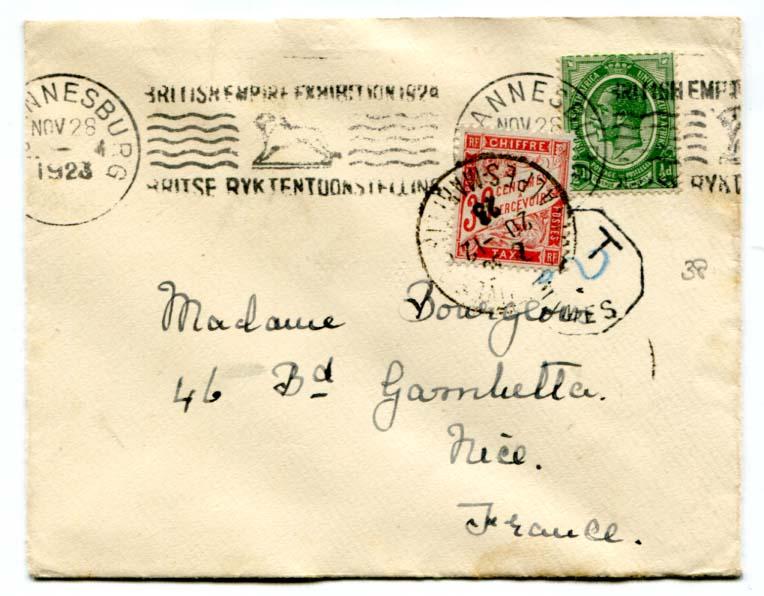 ANNESBURG
NOV 28
4
1923
BRITISH EMPIRE EXHIBITION 1924
BRITSE RYKTENTOONSTELLING
ANNES
NOV 28
BRITISH EMP
RYKT
RF CHIFFRE
30
CENTIMES
PERCEVOIR
POSTES
TAXE RF
20 -12
23
T
38
Madame Bourgeois
46 Bd Gambetta.
Nice.
France.